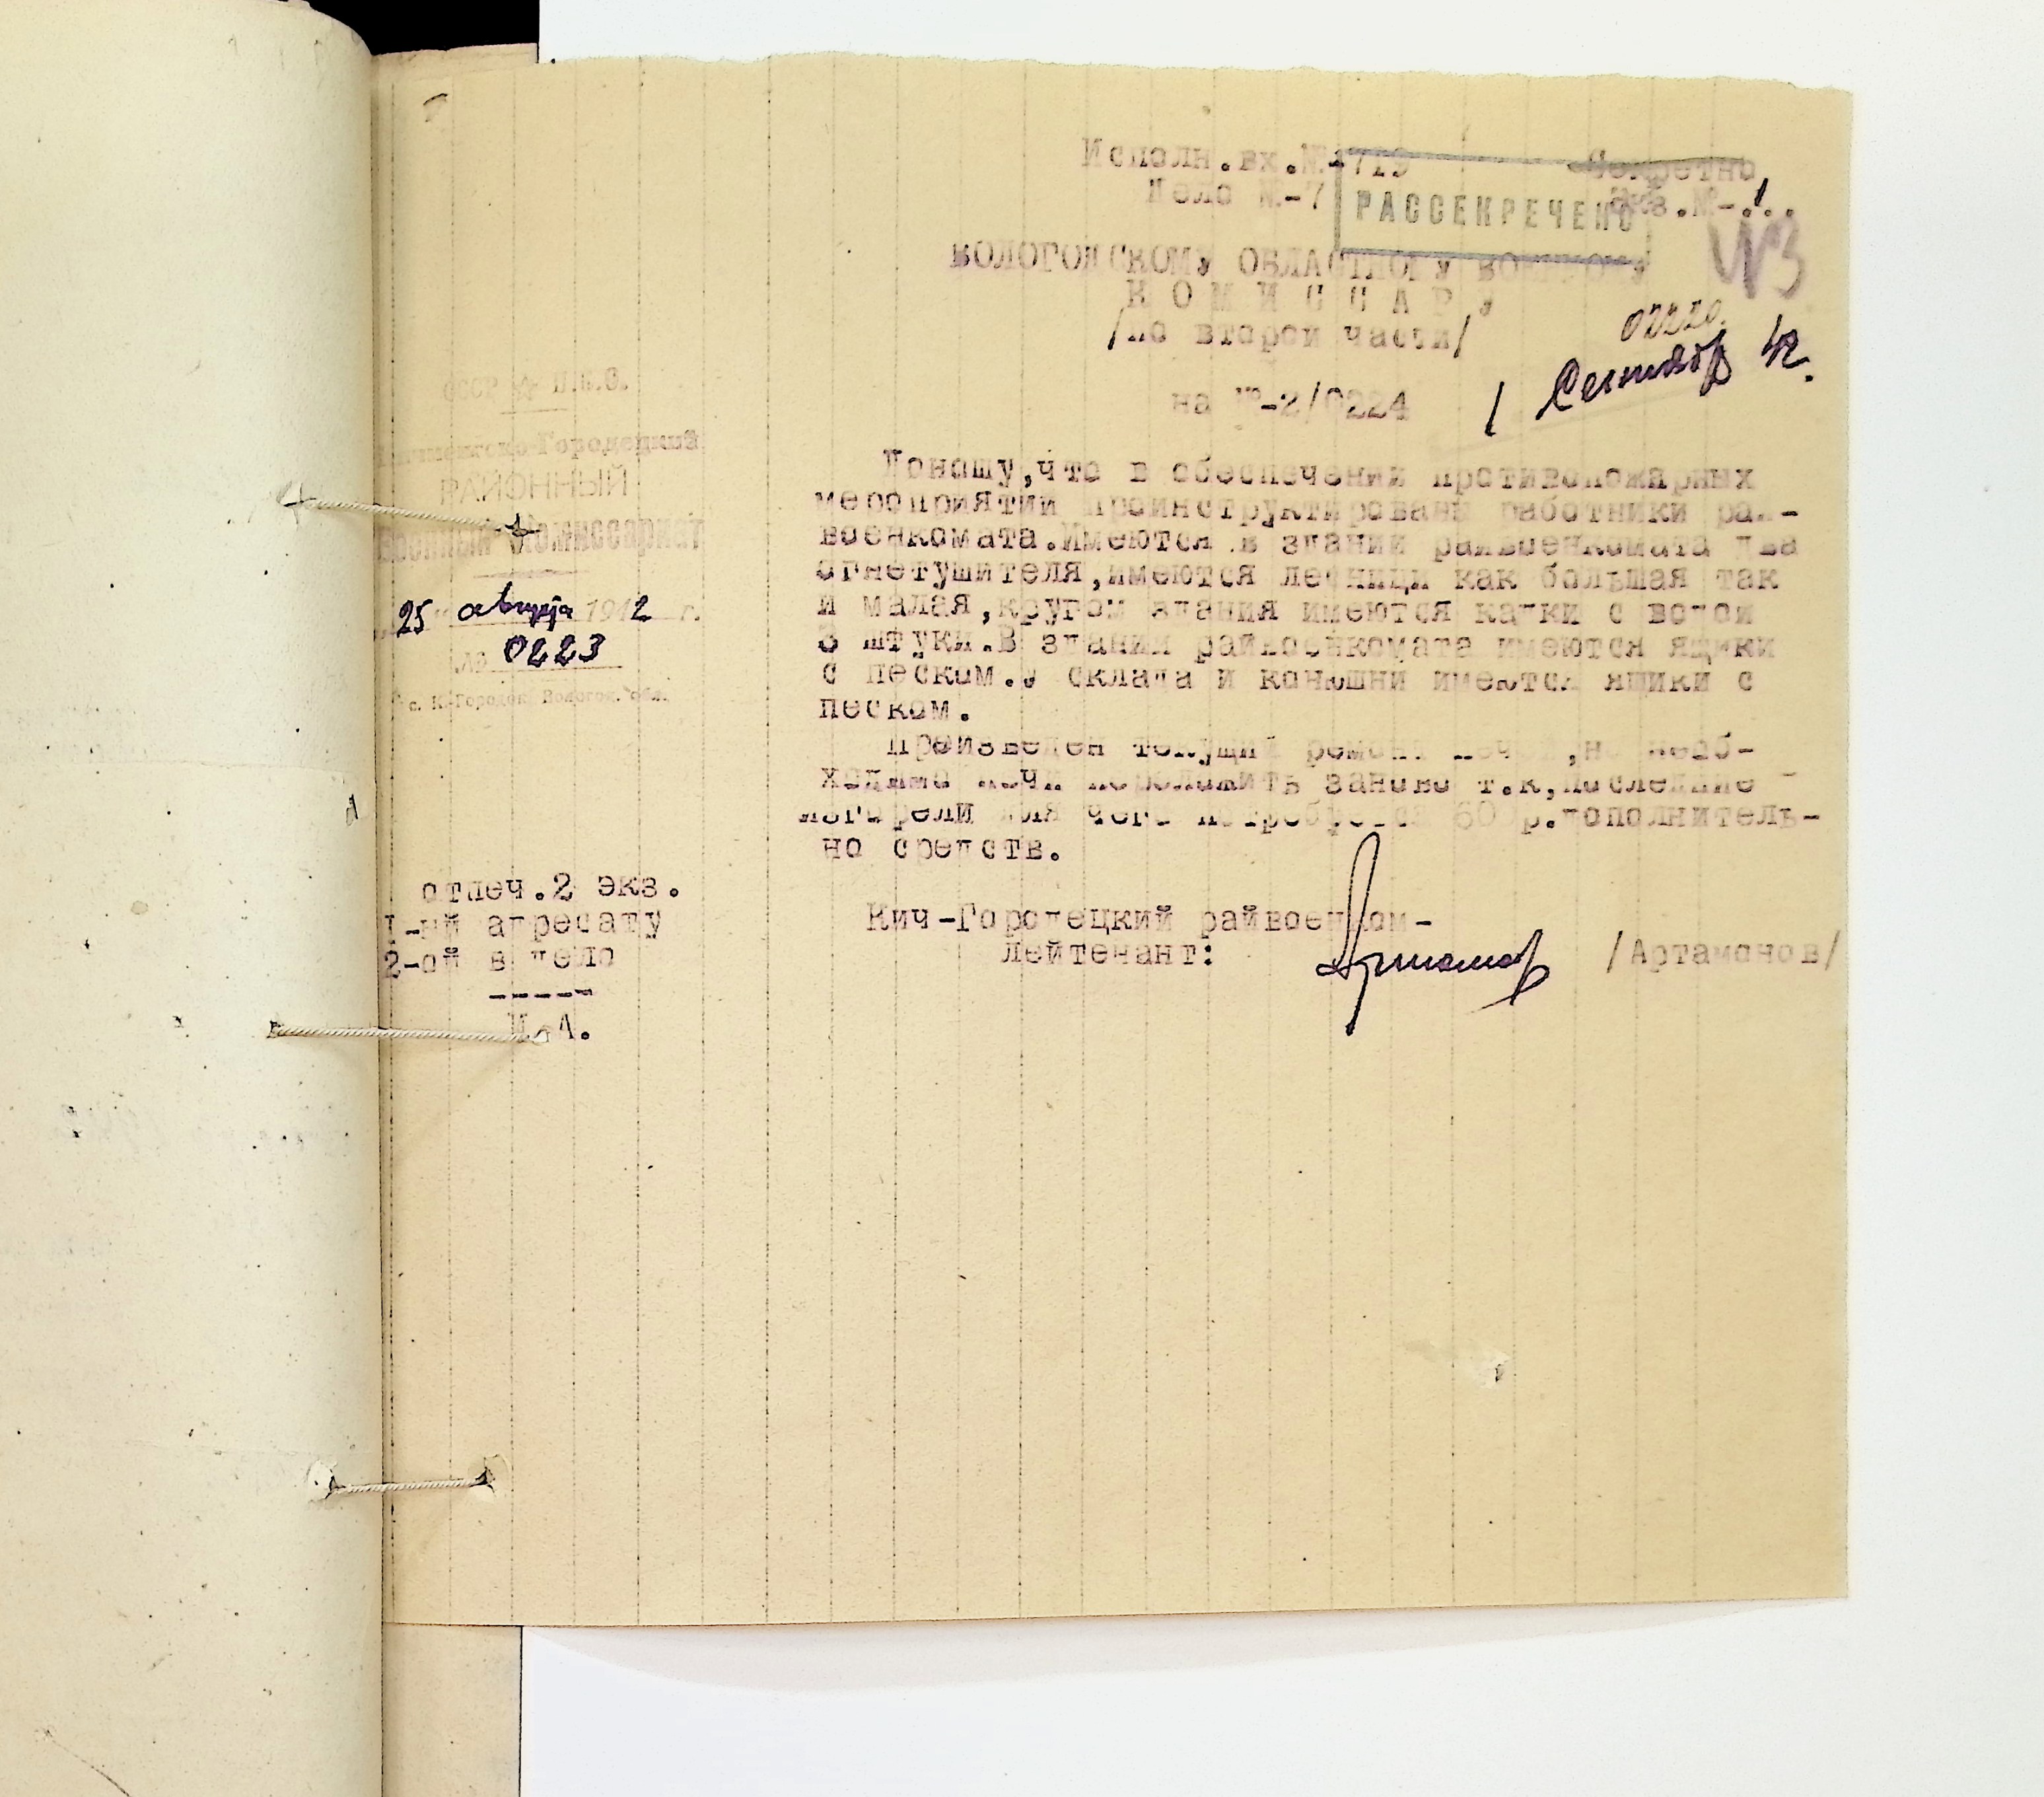 Исполн.вх.№1719
Секретно
Дело №-7
Экз.№-.1..
РАССЕКРЕЧЕНО
43
ВОЛОГОДСКОМУ ОБЛАСТНОМУ ВОЕННОМУ
К О М И С С А Р У
/по второй части/
02220.
1 Сентябр 42.
на №-2/0224
СССР П.К.О.
Кичменгско-Городецкий
РАЙОННЫЙ
Военный Комиссариат
25 августа 1942 г.
№ 0223
с. К-Городок Вологод. обл.
Доношу,что в обеспечении противопожарных
мероприятий проинструктированы работники рай-
военкомата.Имеются в здании райвоенкомата два
огнетушителя,имеются лесницы как большая так
и малая,кругом здания имеются катки с водой
3 штуки.В здании райвоенкомата имеются ящики
с песком.У склада и конюшни имеются ящики с
песком.
Произведен текущий ремонт печей,но необ-
ходимо печи переложить заново т.к,последние
изгорели для чего потребуется р.дополнитель-
но средств.
отпеч.2 экз.
1-ый адресату
2-ой в дело
-----
Кич-Городецкий райвоенком-
лейтенант:
/Артамонов/